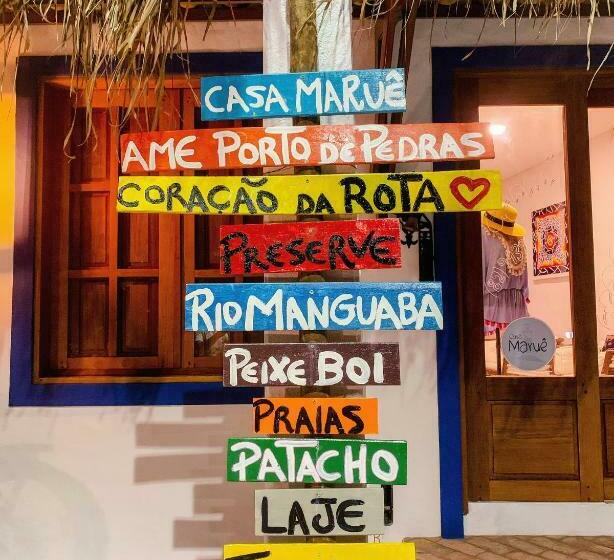 CASA MARUÊ
AME PORTO DE PEDRAS
CORAÇÃO DA ROTA
PRESERVE
RIO MANGUABA
PEIXE BOI
PRAIAS
PATACHO
LAJE
Casa
Maruê